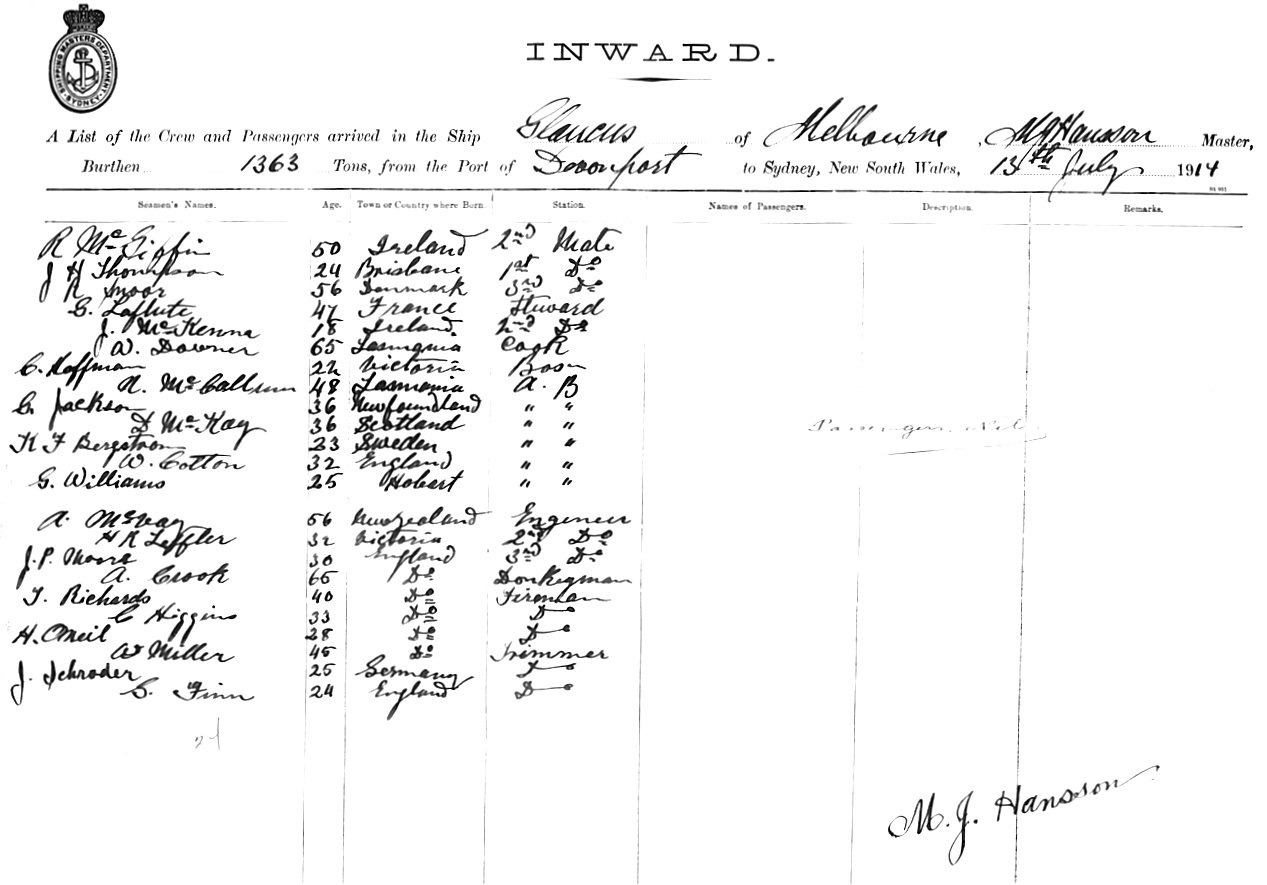 SHIPPING MASTERS DEPARTMENT SYDNEY
INWARD.
A List of the Crew and Passengers arrived in the Ship Glaucus of Melbourne, M J Hansson Master,
Burthen 1363 Tons, from the Port of Devonport to Sydney, New South Wales, 13th July 1914
Seamen's Names. Age. Town or Country where Born. Station. Names of Passengers. Description. Remarks.
R McGiffin 50 Ireland 2nd Mate
J H Thompson 24 Brisbane 1st Do
R Moor 56 Denmark 3rd Do
G. Laflute 47 France Steward
J. McKenna 18 Ireland 2nd Do
W. Downer 65 Tasmania Cook
C. Hoffman 22 Victoria Bosn
N. McCallum 48 Tasmania A. B
G. Jackson 36 Newfoundland " "
D McKay 36 Scotland " " Passengers Nil
K F Bergstrom 23 Sweden " "
W. Cotton 32 England " "
G. Williams 25 Hobart " "
A. McVay 56 New Zealand Engeneer
H R Leffler 32 Victoria 2nd Do
J. P. Moore 30 England 3rd Do
A. Crook 65 Do Donkeyman
T. Richards 40 Do Fireman
C Higgins 33 Do Do
H. ONeil 28 Do Do
W Miller 45 Do Trimmer
J. Schroder 25 Germany Do
G. Finn 24 England Do
M. J. Hansson